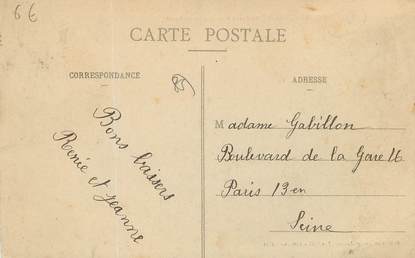 6€
CARTE POSTALE
CORRESPONDANCE
85
ADRESSE
Bons baisers
Renée et Jeanne
Madame Gabillon
Boulevard de la Gare 16
Paris 13en
Seine